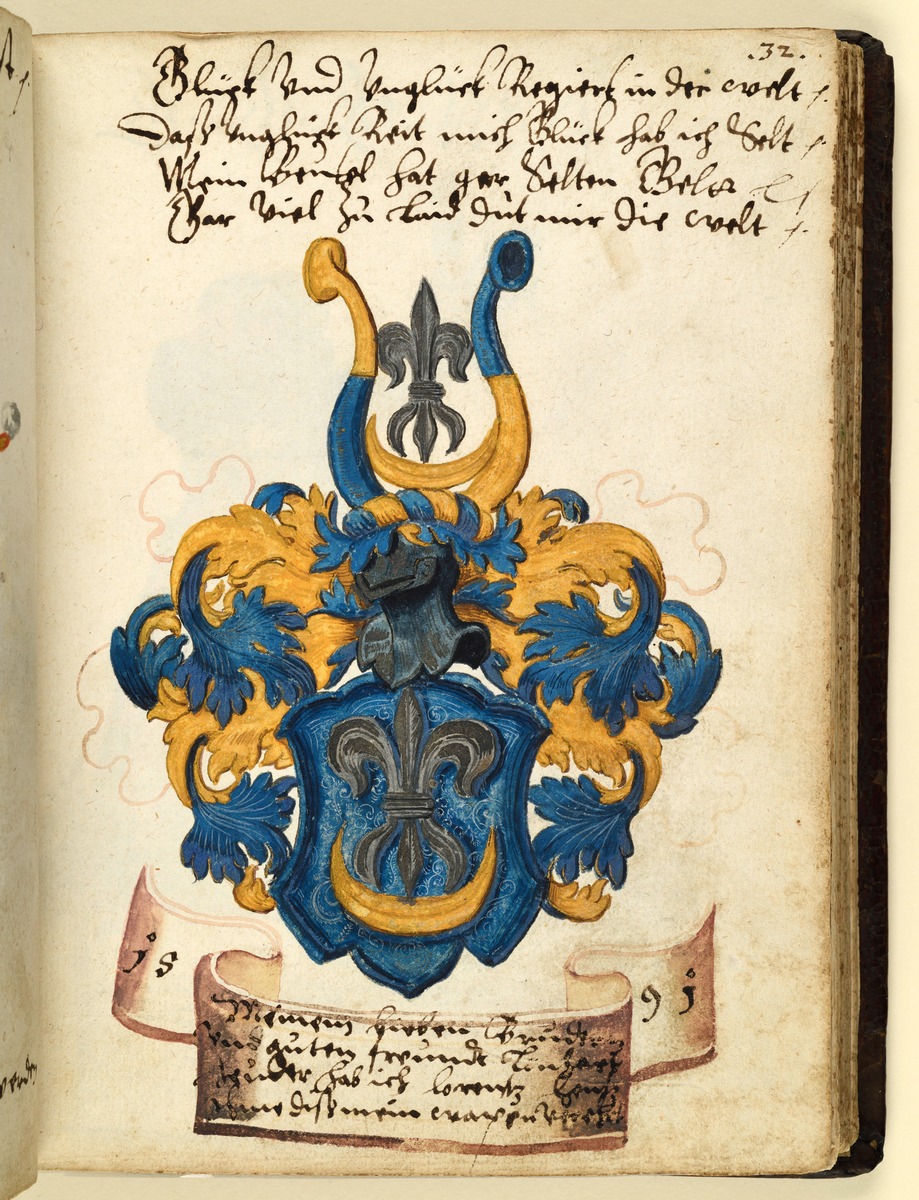 .32.
Glück Vnd Vnglück Regiert in der welt
Dass Vnglück Reit mich Glück hab ich Selt
Mein Beutel hat gar Selten Gelt
Gar Viel zu Laid dut mir die welt
15 91
Meinem lieben Bruder
Vnd guten freundt
hab ich lorentz
disz mein wapen